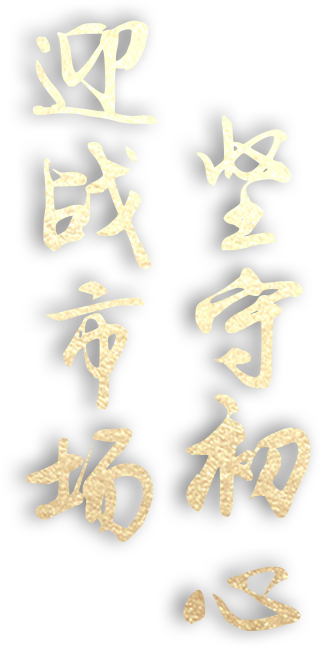 坚守初心
迎战市场